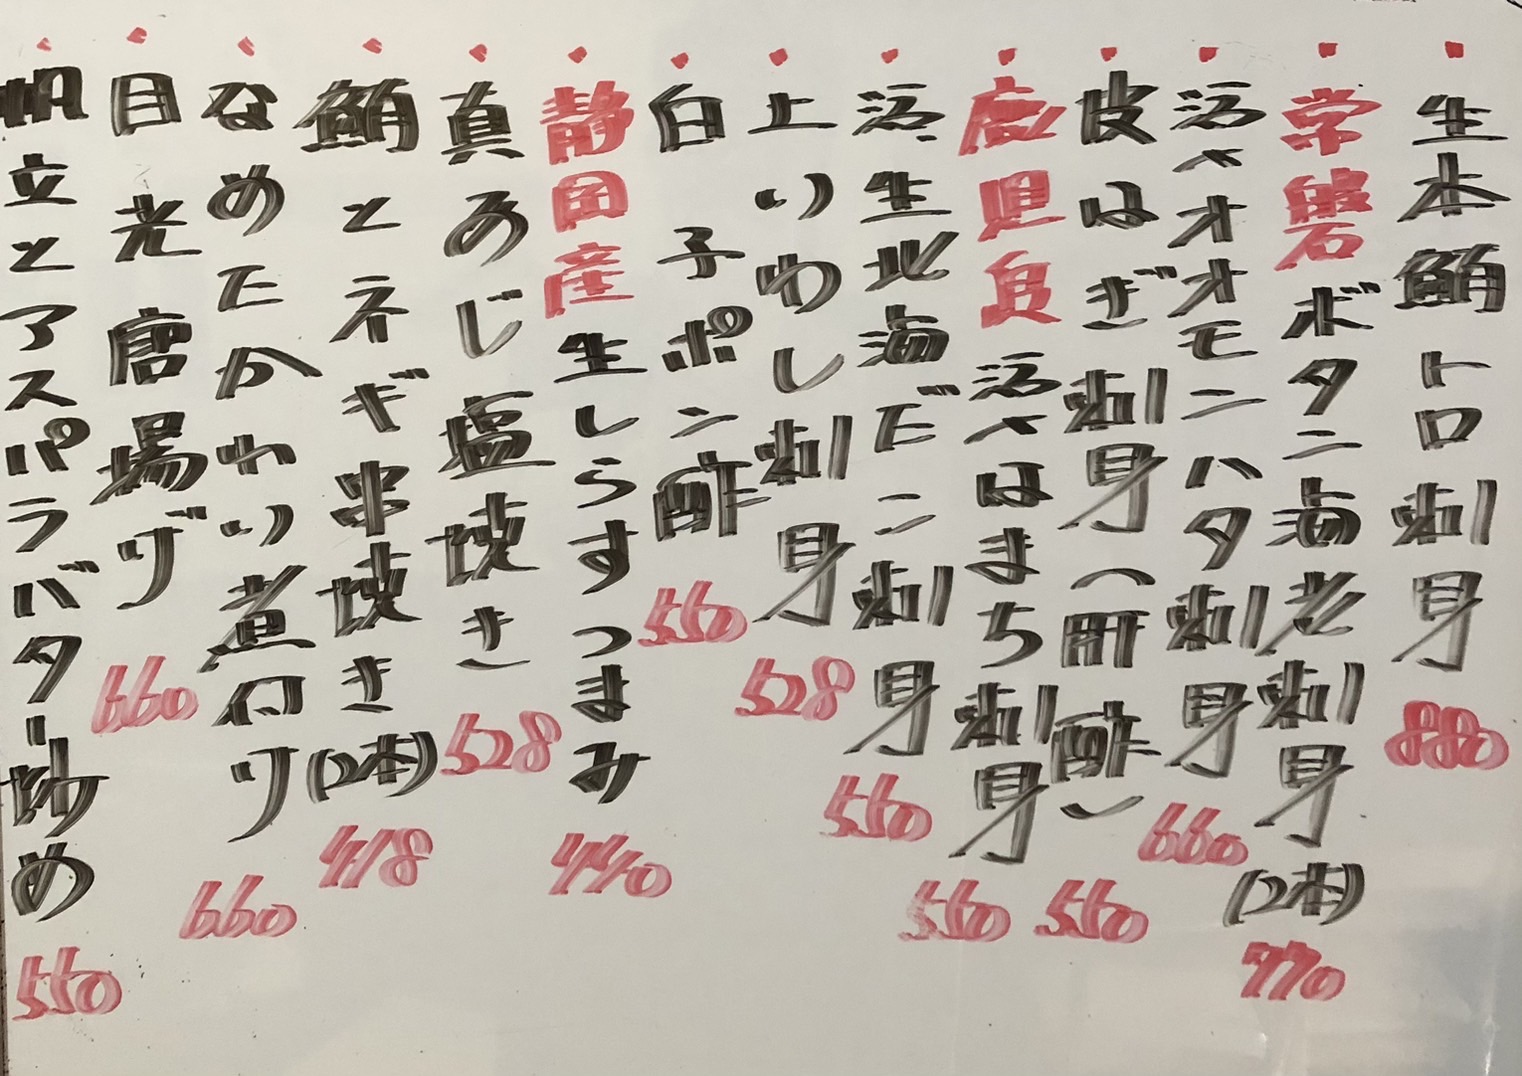 生本鮪トロ刺身 880
常磐ボタン海老刺身(2本) 770
活〆オオモンハタ刺身 660
皮はぎ刺身(肝酢) 550
鹿児島 活〆はまち刺身 550
活生北海だこ刺身 550
上いわし刺身 528
白子ポン酢 550
静岡産生しらすつまみ 440
真あじ塩焼き 528
鮪とネギ串焼き(2本) 418
なめたかわり煮付け 660
目光唐揚げ 660
帆立とアスパラバター炒め 550